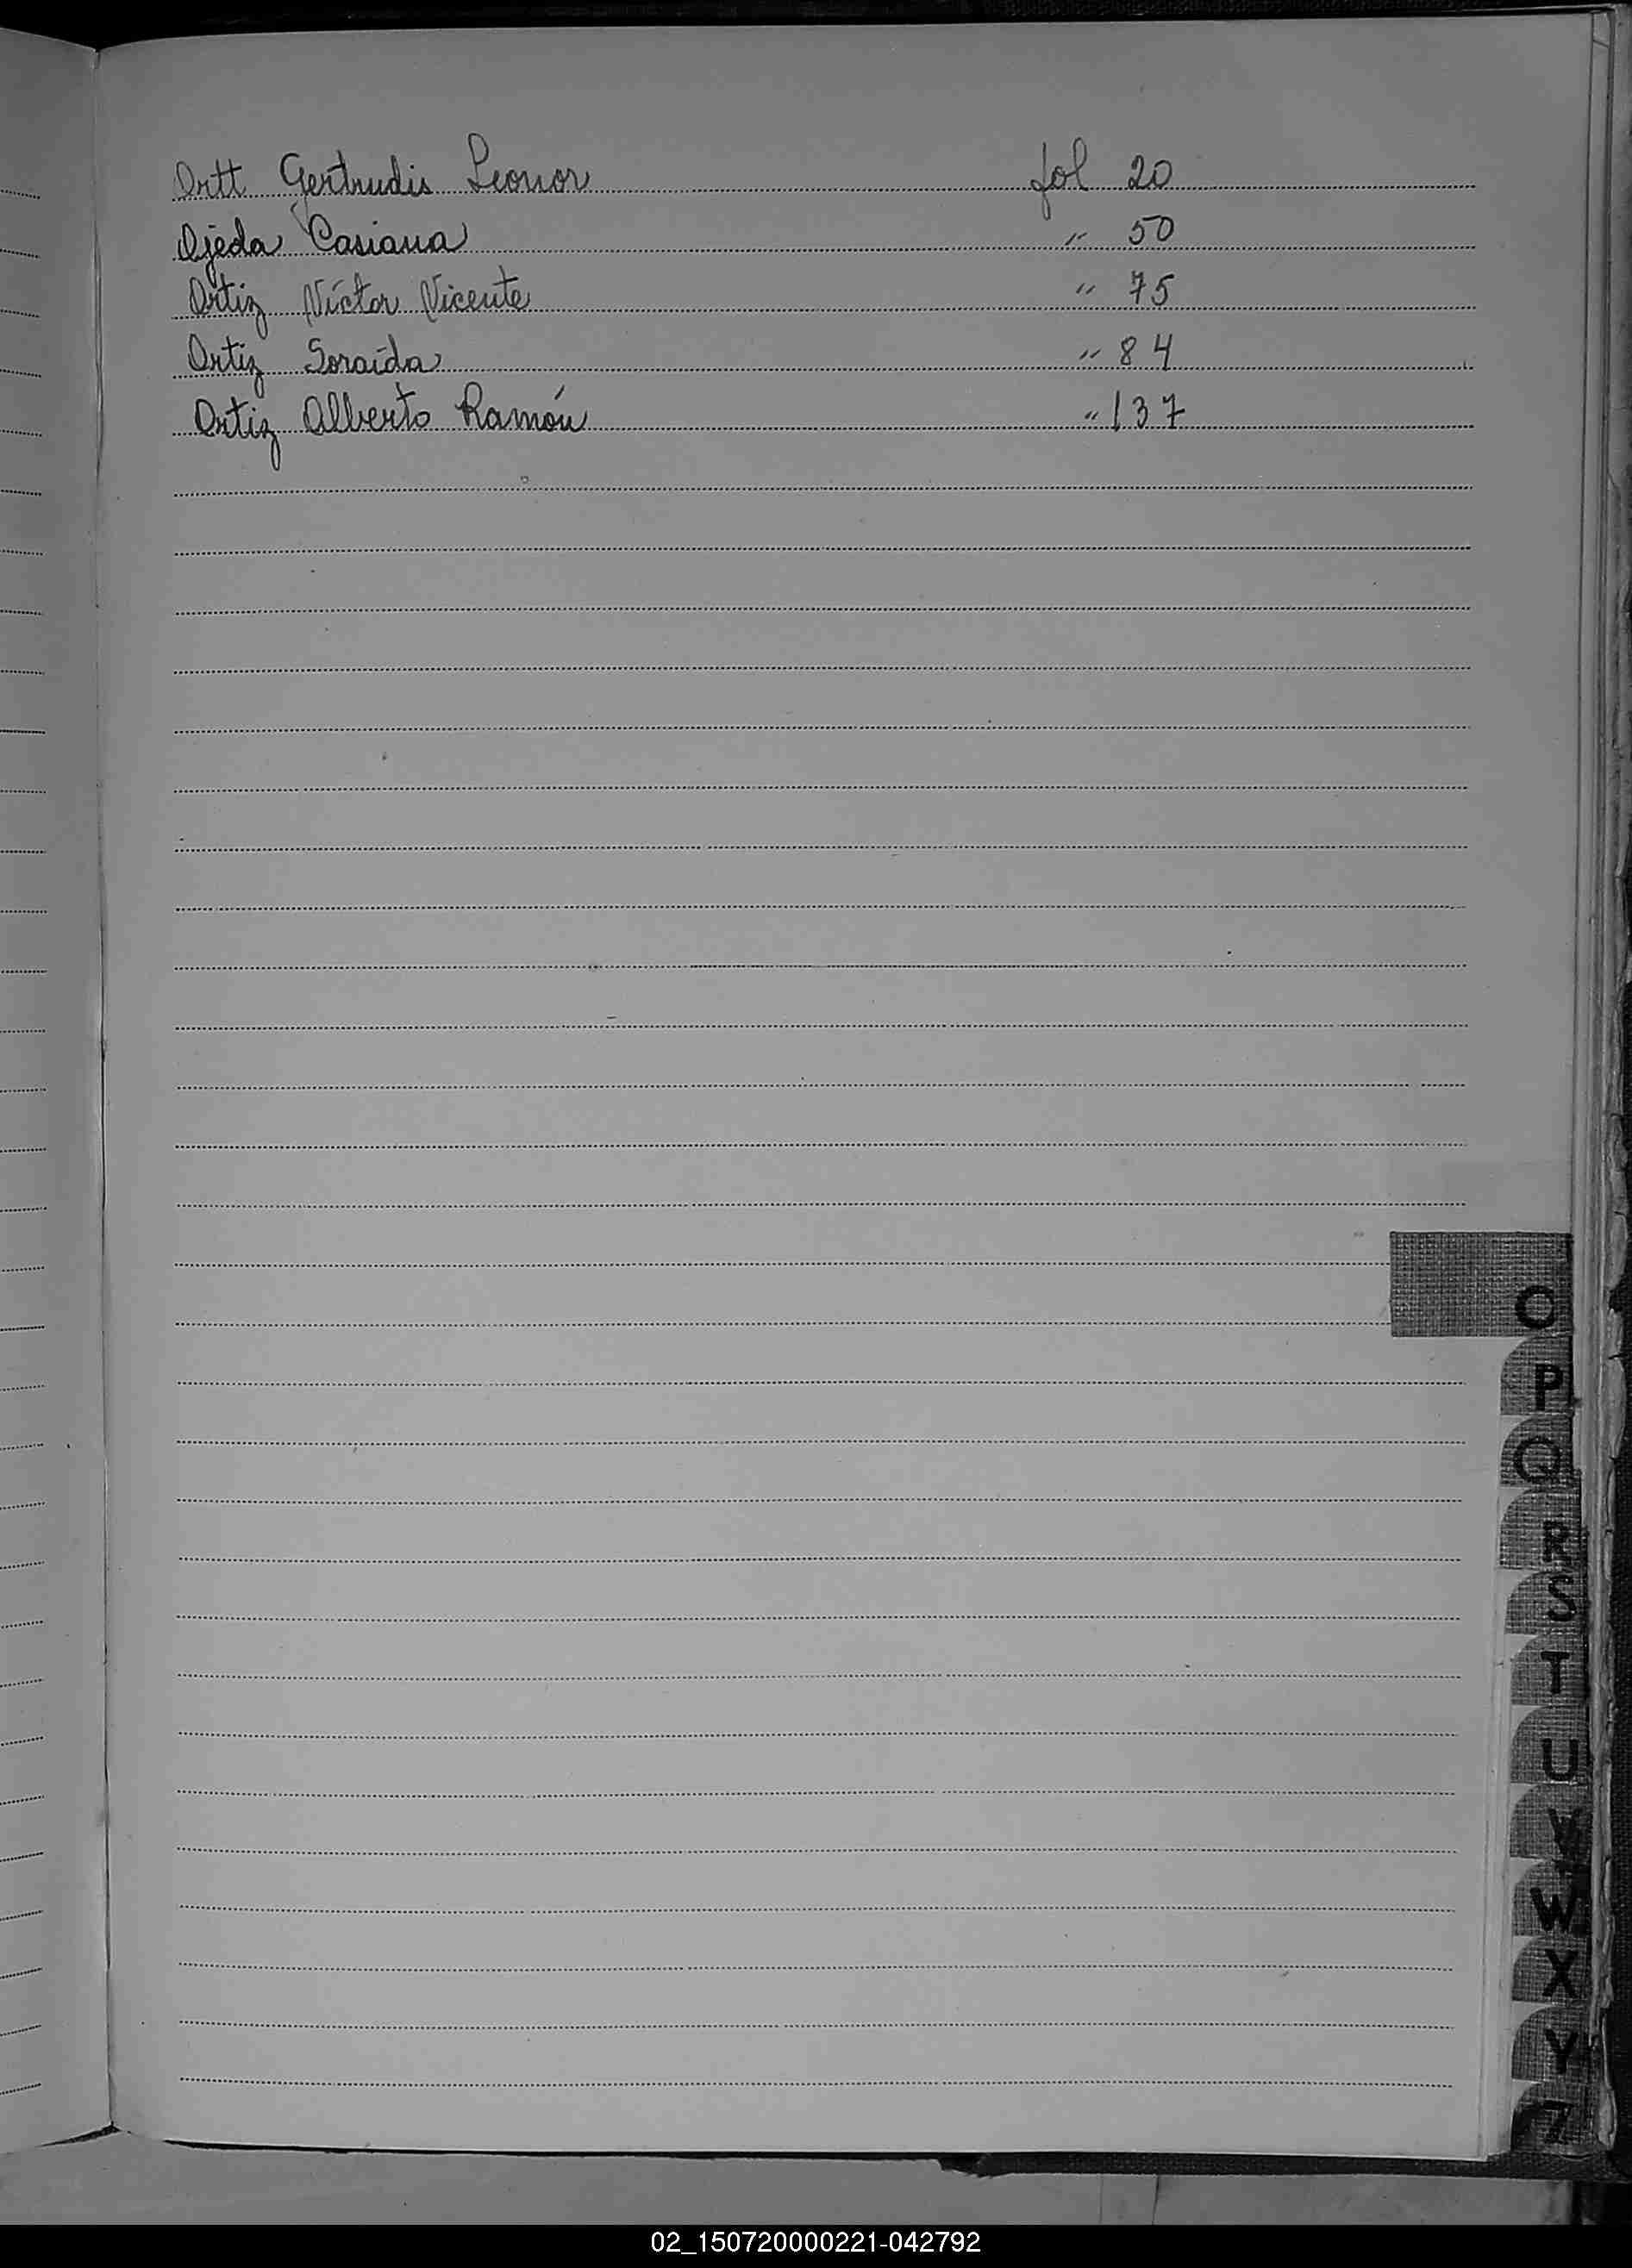 Ortt Gertrudis Leonor fol 20
Ojeda Casiana " 50
Ortiz Víctor Vicente " 75
Ortiz Soraida " 84
Ortiz Alberto Ramón " 137
O
P
Q
R
S
T
U
V
W
X
Y
Z
02_150720000221-042792